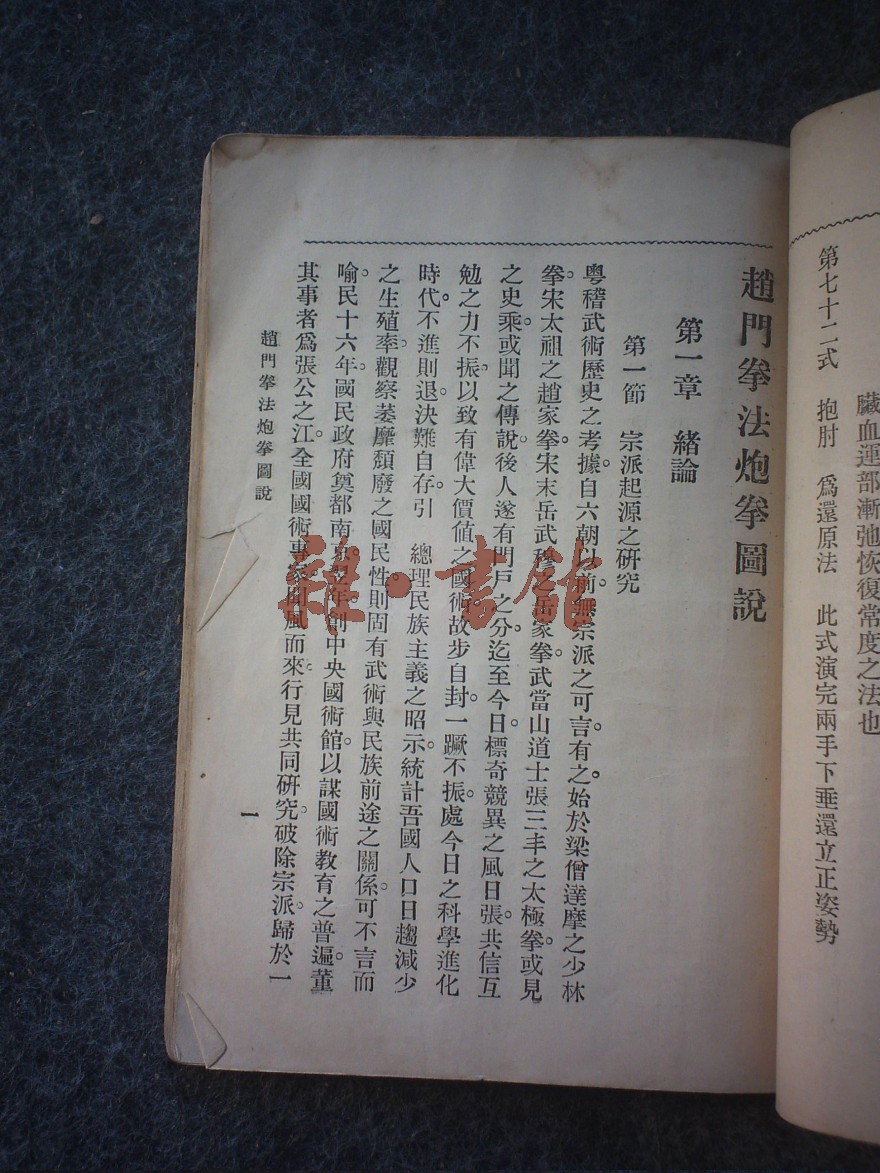 臟血運部漸弛恢復常度之法也
第七十二式　抱肘　爲還原法　此式演完兩手下垂還立正姿勢
趙門拳法炮拳圖說
第一章　緒論
第一節　宗派起源之研究
粤稽武術歷史之考據。自六朝以前無宗派之可言。有之。始於梁僧達摩之少林
拳。宋太祖之趙家拳。宋末岳武穆之岳家拳。武當山道士張三丰之太極拳。或見
之史乘。或聞之傳說。後人遂有門戶之分。迄至今日。標奇競異之風日張。共信互
勉之力不振。以致有偉大價值之國術。故步自封。一蹶不振。處今日之科學進化
時代。不進則退。決難自存。引　總理民族主義之昭示。統計吾國人口日趨減少
之生殖率。觀察萎靡頹廢之國民性。則固有武術與民族前途之關係。可不言而
喻。民十六年。國民政府奠都南京。翌年創中央國術館。以謀國術教育之普遍。董
其事者爲張公之江。全國國術專家聞風而來。行見共同研究。破除宗派。歸於一
趙門拳法炮拳圖說
一
雜·書館